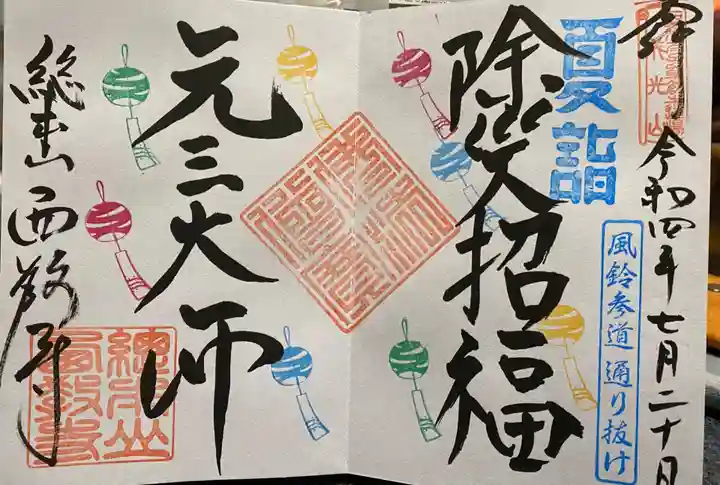 奉拝
令和四年七月二十日
夏詣
風鈴参道 通り抜け
除災招福
元三大師
総本山西教寺
總本山
西教寺